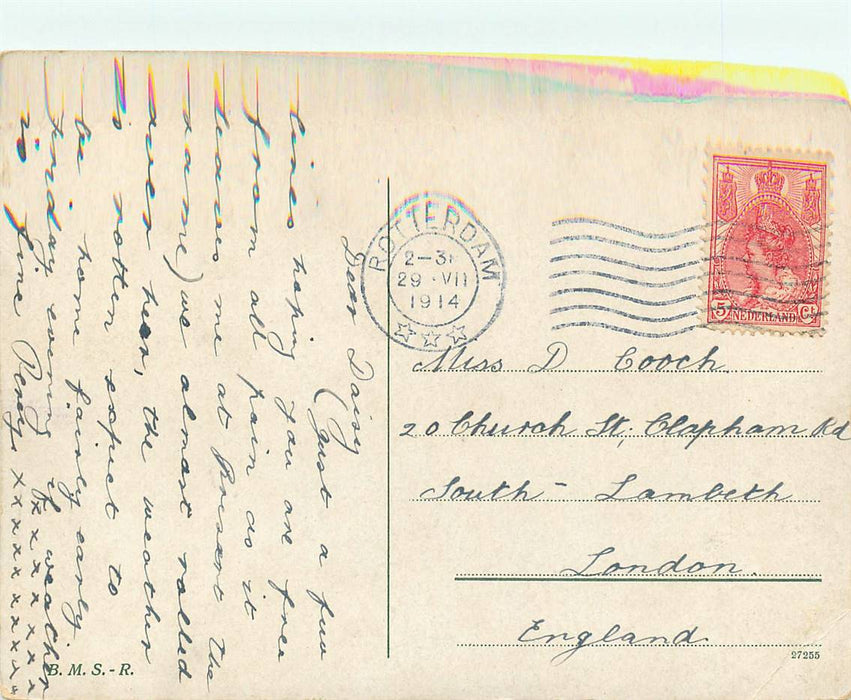 Dear Daisy
(Just a few
lines hoping you are free
from all pain as it
leaves me at Present the
same) we almost rolled
over hear, the weather
is rotten expect to
be home fairly early
Friday evening if weather
is fine Percy x x x x x x x x x
x x x x x x x x
ROTTERDAM
2-3
29 · VII
1914
5 Ct
NEDERLAND
Miss D Cooch
20 Church St; Clapham Rd
South - Lambeth
London.
England.
B. M. S. - R.
27255